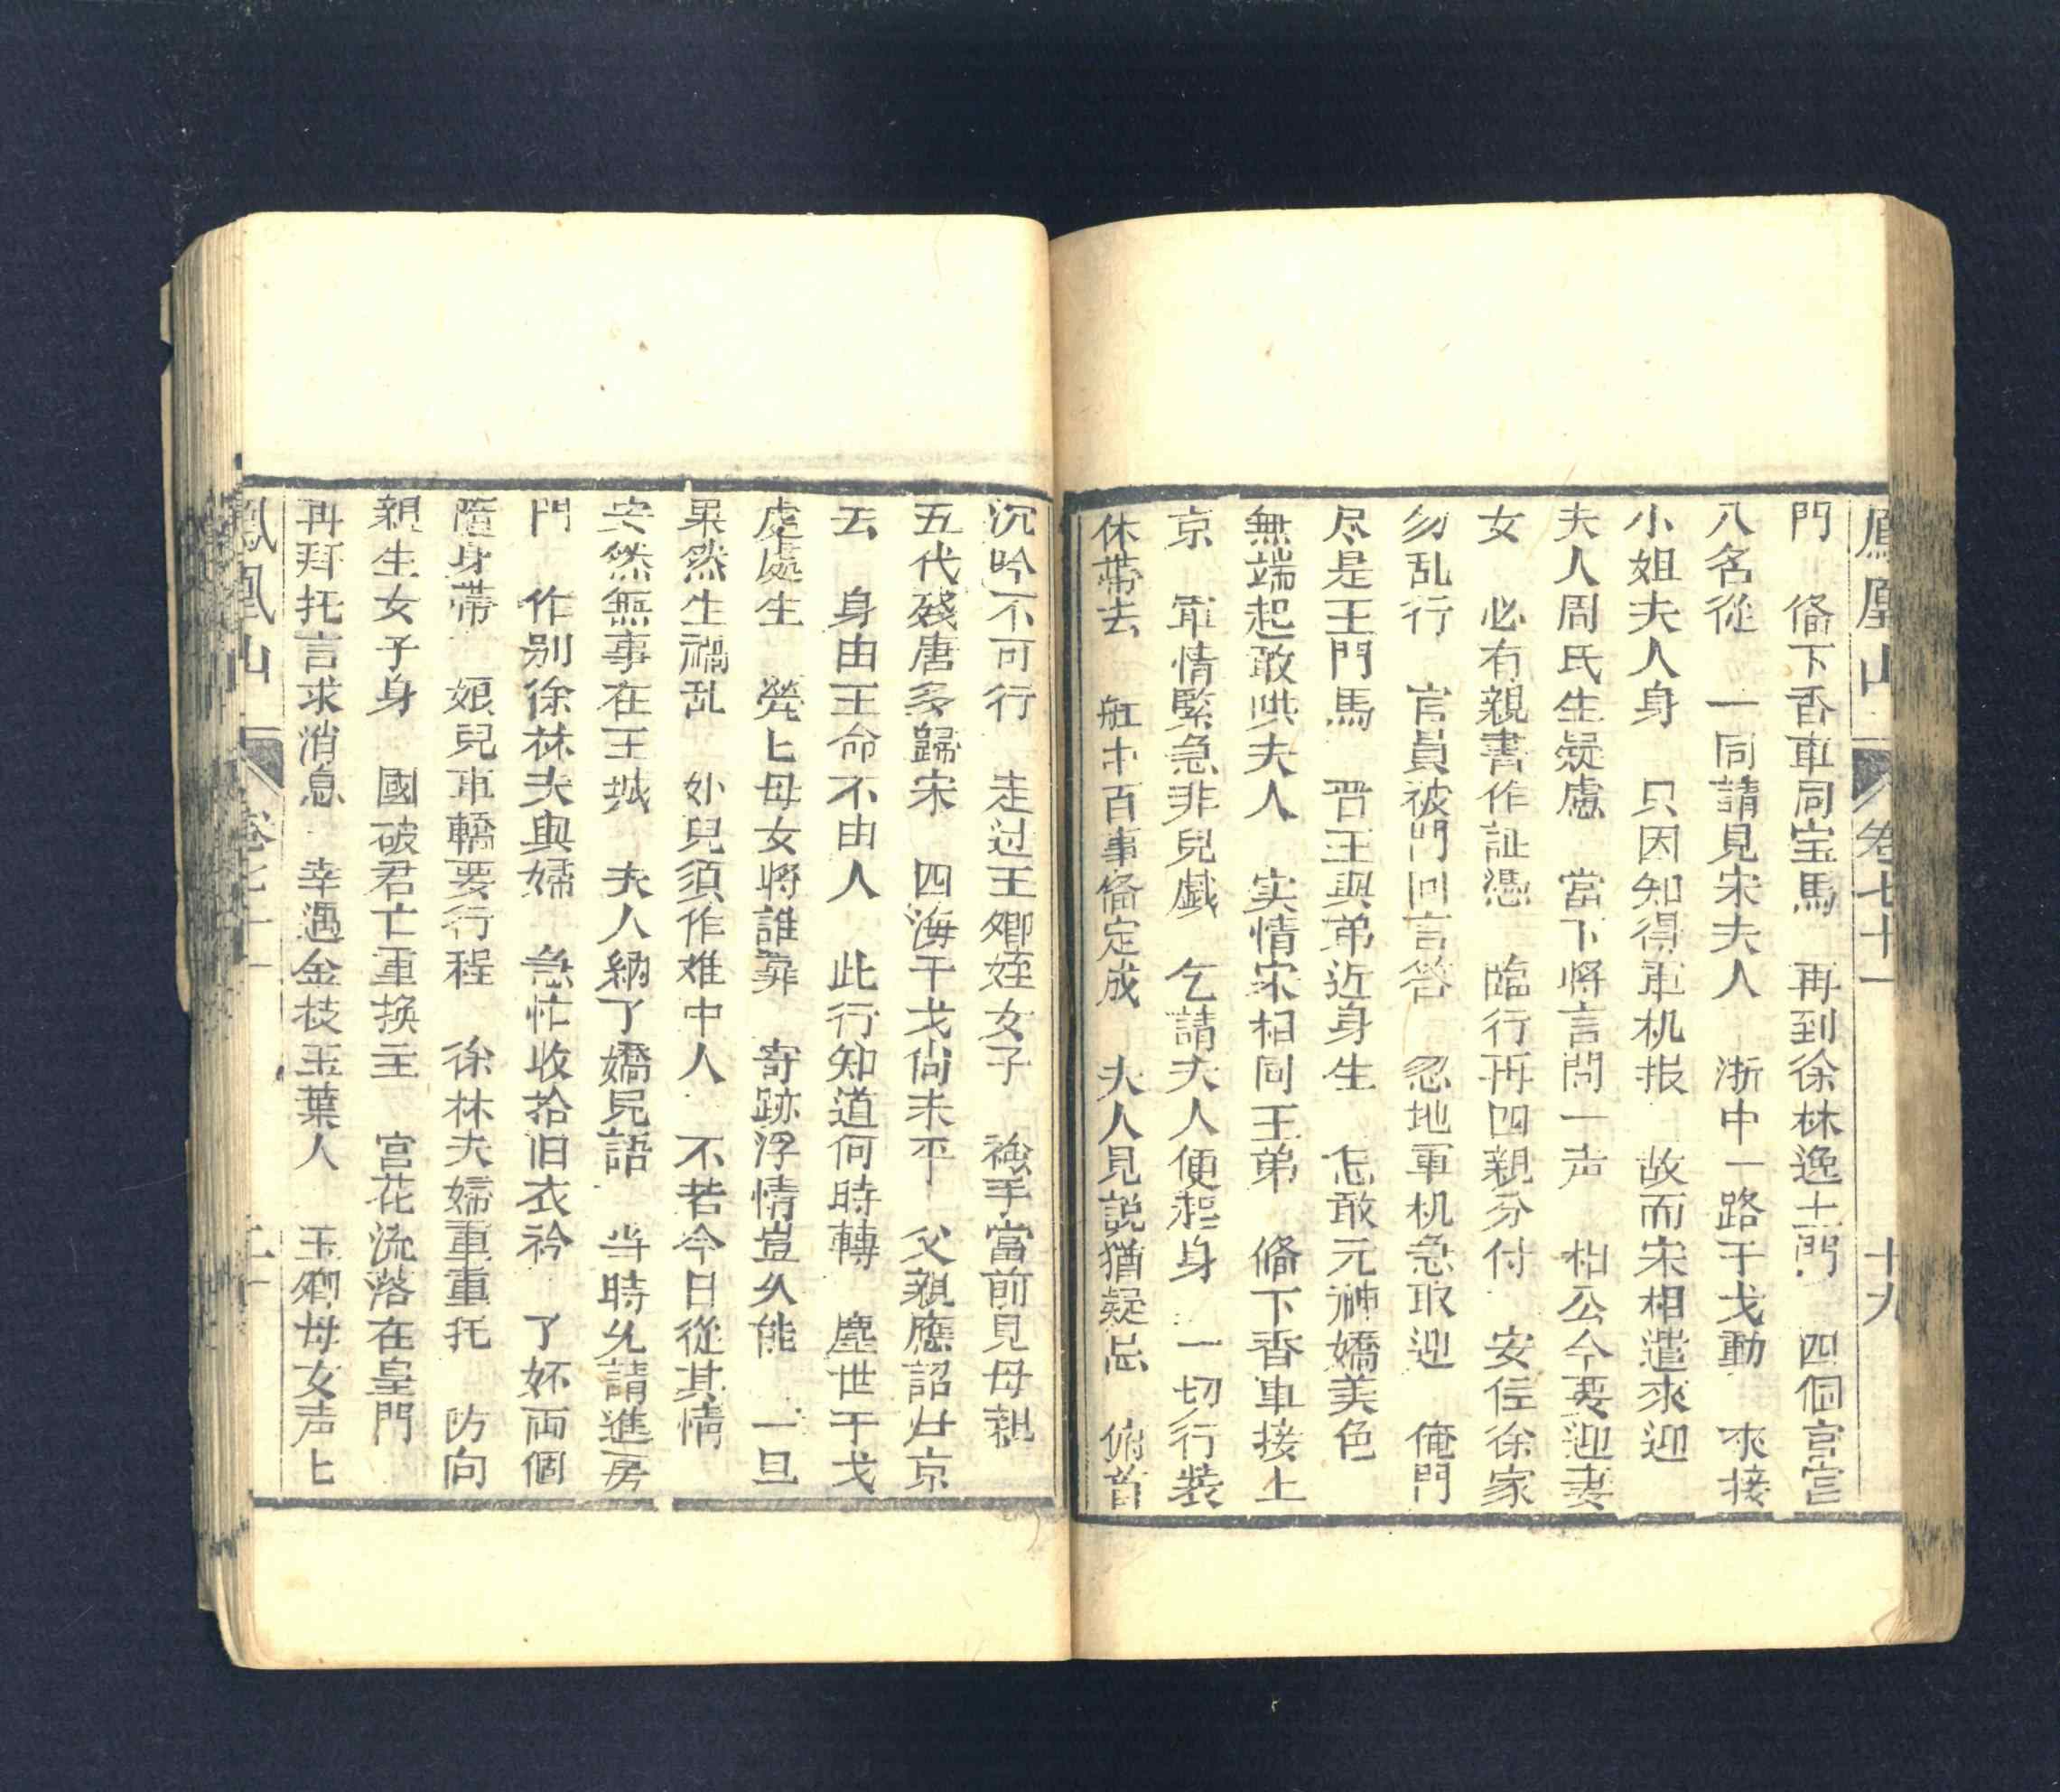 鳳凰山 卷七十一 十九
門 俻下香車同宝馬 再到徐林逸士門 四個京官
八名從 一同請見宋夫人 浙中一路干戈動 來接
小姐夫人身 只因知得軍机报 故而宋相遣來迎
夫人周氏生疑慮 當下將言問一声 相公今要迎妻
女 必有親書作証憑 臨行再四親分付 安住徐家
勿乱行 官員彼門回言答 忽地軍机急取迎 俺門
尽是王門馬 晋王與弟近身生 怎敢元神嬌美色
無端起敢哄夫人 实情宋相同王弟 俻下香車接上
京 軍情緊急非兒戯 乞請夫人便起身 一切行裝
休帶去 舡中百事俻定成 夫人見説猶疑忌 俯首
沉吟不可行 走过玉卿姪女子 襝手當前見母親
五代殘唐多歸宋 四海干戈尚未平 父親應詔廾京
去 身由王命不由人 此行知道何時轉 塵世干戈
處處生 煢匕母女將誰靠 寄跡浮情豈久能 一旦
果然生禍乱 妙兒須作难中人 不若今日從其情
安然無事在王城 夫人納了嬌兒語 当時允請進房
門 作别徐林夫與婦 急忙收拾旧衣衿 了妚両個
隨身帶 娘兒車轎要行程 徐林夫婦重重托 防向
親生女子身 國破君亡重换主 宮花流落在皇門
再拜托言求消息 幸遇金枝玉葉人 玉卿母女声匕
鳳凰山 卷七十一 二十